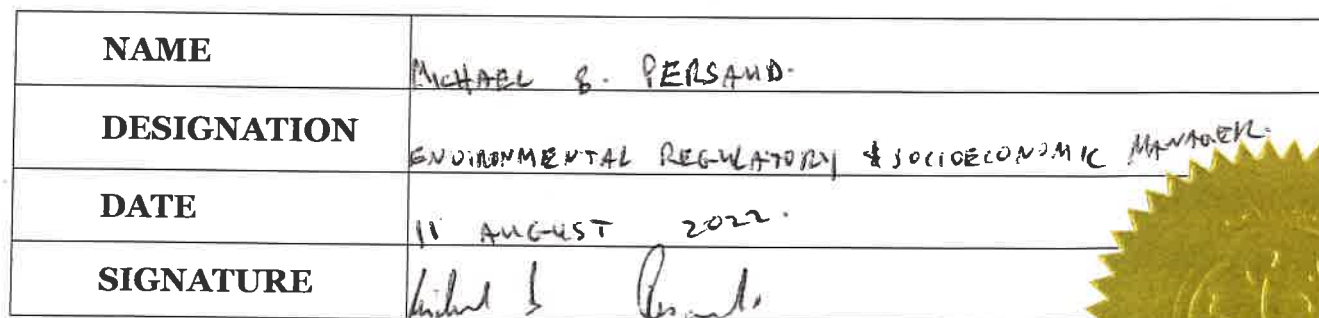 NAME MICHAEL B. PERSAUD.
DESIGNATION ENVIRONMENTAL REGULATORY & SOCIOECONOMIC MANAGER.
DATE 11 AUGUST 2022.
SIGNATURE